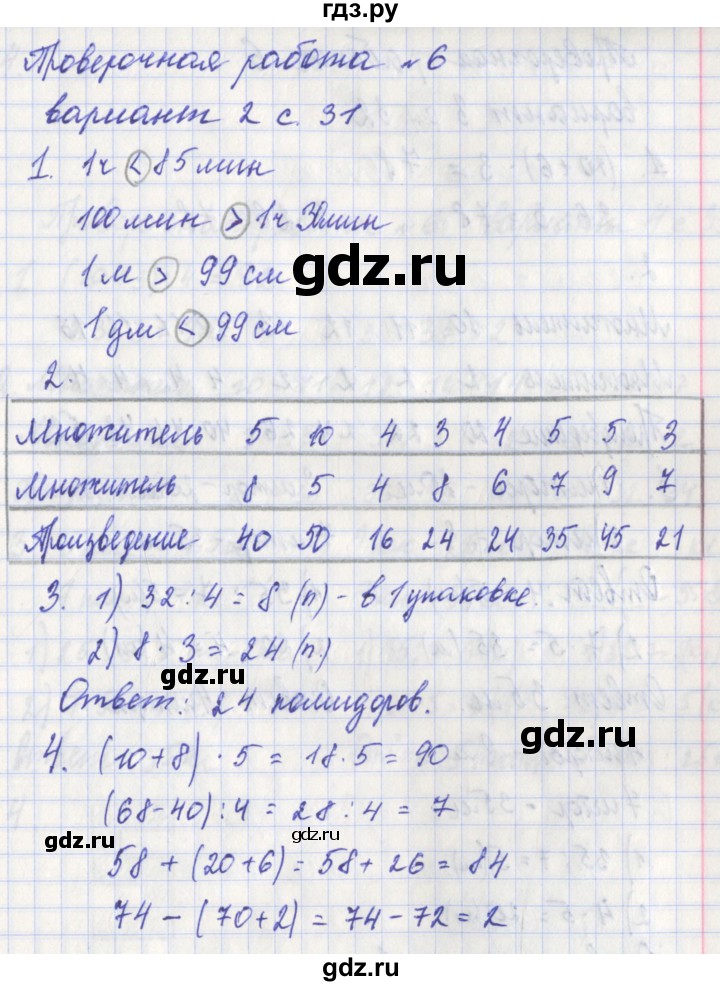 гдз.ру
Проверочная работа №6
вариант 2 с. 31
1. 1ч < 85мин
100мин > 1ч 30мин
1м > 99см
gdz.ru
1дм < 99см
2.
Множитель 5 10 4 3 4 5 5 3
Множитель 8 5 4 8 6 7 9 7
Произведение 40 50 16 24 24 35 45 21
3. 1) 32 : 4 = 8 (п) - в 1 упаковке.
2) 8 · 3 = 24 (п.)
gdz.ru
Ответ: 24 помидоров.
4. (10+8) · 5 = 18·5 = 90
(68-40) : 4 = 28 : 4 = 7
gdz.ru
gdz.ru
58 + (20+6) = 58 + 26 = 84
74 - (70+2) = 74 - 72 = 2
gdz.ru